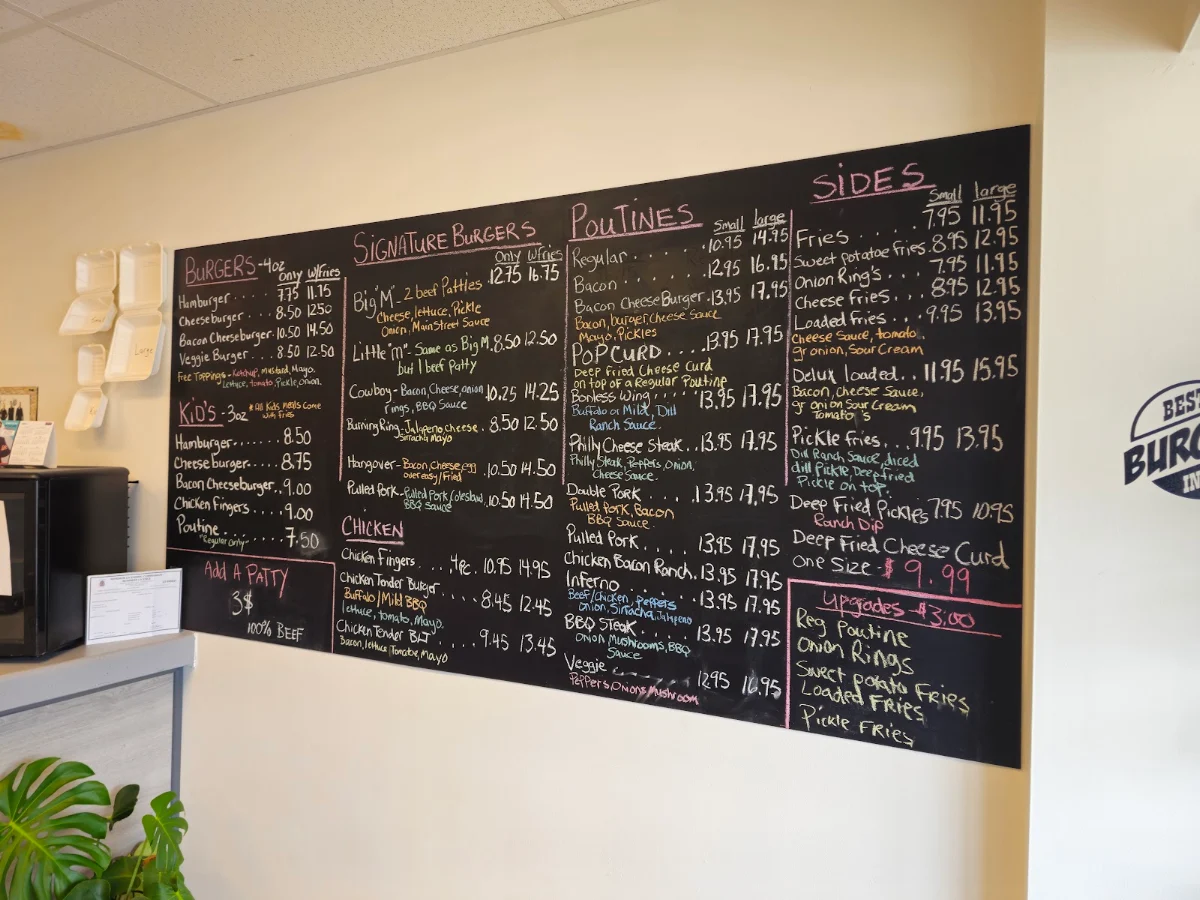 BURGERS -4oz
Only w/Fries
Hamburger .... 7.75 11.75
Cheeseburger ... 8.50 12.50
Bacon Cheeseburger. 10.50 14.50
Veggie Burger ... 8.50 12.50
Free Toppings - Ketchup, Mustard, Mayo,
Lettuce, tomato, Pickle, Onion.
KiD'S -3oz
* All Kids meals come
with fries
Hamburger ...... 8.50
Cheeseburger..... 8.75
Bacon Cheeseburger.. 9.00
Chicken Fingers ... 9.00
Poutine ....... 7.50
"Regular Only"
Add A PATTY
3$
100% BEEF
SIGNATURE BURGERS
Only w/Fries
Big "M" - 2 beef Patties 12.75 16.75
Cheese, lettuce, Pickle
Onion, Main Street Sauce
Little "m" - Same as Big M. 8.50 12.50
but 1 beef Patty
Cowboy - Bacon, Cheese, onion 10.25 14.25
rings, BBQ Sauce
Burning Ring - Jalapeno, Cheese. 8.50 12.50
Sirracha Mayo
Hangover - Bacon, Cheese, egg 10.50 14.50
over easy/Fried
Pulled Pork - Pulled Pork, Coleslaw, 10.50 14.50
BBQ Sauce
CHICKEN
Chicken Fingers ... 4pc. 10.95 14.95
Chicken Tender Burger ..... 8.45 12.45
Buffalo/Mild BBQ
lettuce, tomato, Mayo.
Chicken Tender BLT ..... 9.45 13.45
Bacon, lettuce, Tomatoe, Mayo
POUTINES
Small large
Regular ....... 10.95 14.95
Bacon ....... 12.95 16.95
Bacon Cheese Burger. 13.95 17.95
Bacon, burger, cheese Sauce
Mayo, Pickles
POP CURD .... 13.95 17.95
Deep Fried Cheese Curd
on top of a Regular Poutine
Bonless Wing .... 13.95 17.95
Buffalo or Mild, Dill
Ranch Sauce.
Philly Cheese Steak.. 13.95 17.95
Philly Steak, Peppers, Onion,
Cheese Sauce.
Double Pork .... 13.95 17.95
Pulled Pork, Bacon
BBQ Sauce.
Pulled Pork ..... 13.95 17.95
Chicken Bacon Ranch. 13.95 17.95
Inferno ...... 13.95 17.95
Beef/chicken, peppers
onion, Sirracha, Jalapeno
BBQ Steak ..... 13.95 17.95
Onion, Mushrooms, BBQ
Sauce
Veggie ....... 12.95 16.95
Peppers, Onions, Mushroom
SiDES
Small large
Fries ...... 7.95 11.95
Sweet potatoe Fries 8.95 12.95
Onion Ring's .... 7.95 11.95
Cheese Fries ... 8.95 12.95
Loaded Fries ... 9.95 13.95
Cheese Sauce, tomato,
gr onion, Sour Cream
Delux Loaded.. 11.95 15.95
Bacon, Cheese Sauce,
gr onion Sour Cream
Tomato's
Pickle Fries... 9.95 13.95
Dill Ranch Sauce, diced
dill Pickle, Deep fried
Pickle on top.
Deep Fried Pickles 7.95 10.95
Ranch Dip
Deep Fried Cheese Curd
One Size - $9.99
Upgrades $3.00
Reg Poutine
Onion Rings
Sweet potato Fries
Loaded FRIES
Pickle FRIES
Large
BEST
BURG
IN